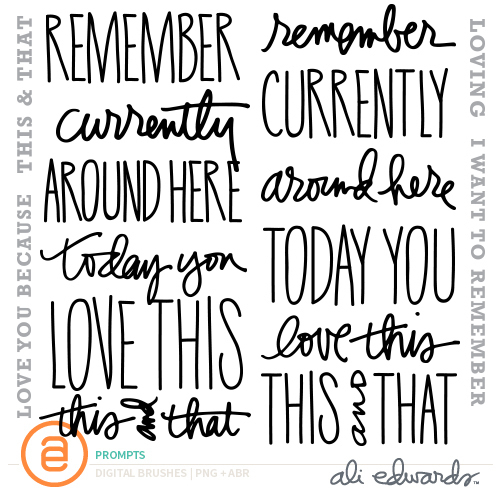 REMEMBER
currently
AROUND HERE
today you
LOVE THIS
this and that
remember
CURRENTLY
around here
TODAY YOU
love this
THIS and THAT
LOVE YOU BECAUSE THIS & THAT
LOVING I WANT TO REMEMBER
a
PROMPTS
DIGITAL BRUSHES | PNG + ABR
ali edwards™